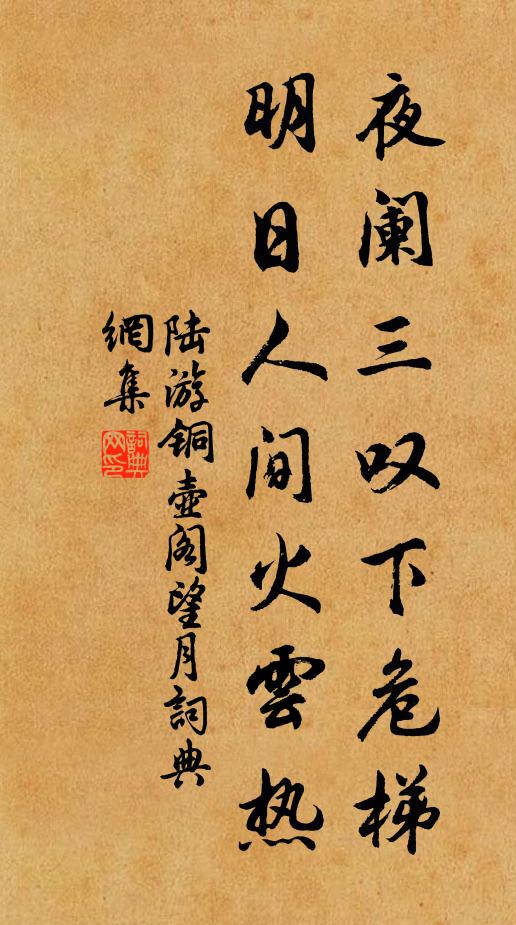 夜阑三叹下危梯
明日人间火雲热
陆游铜壶阁望月詞典
網集
詞典网印